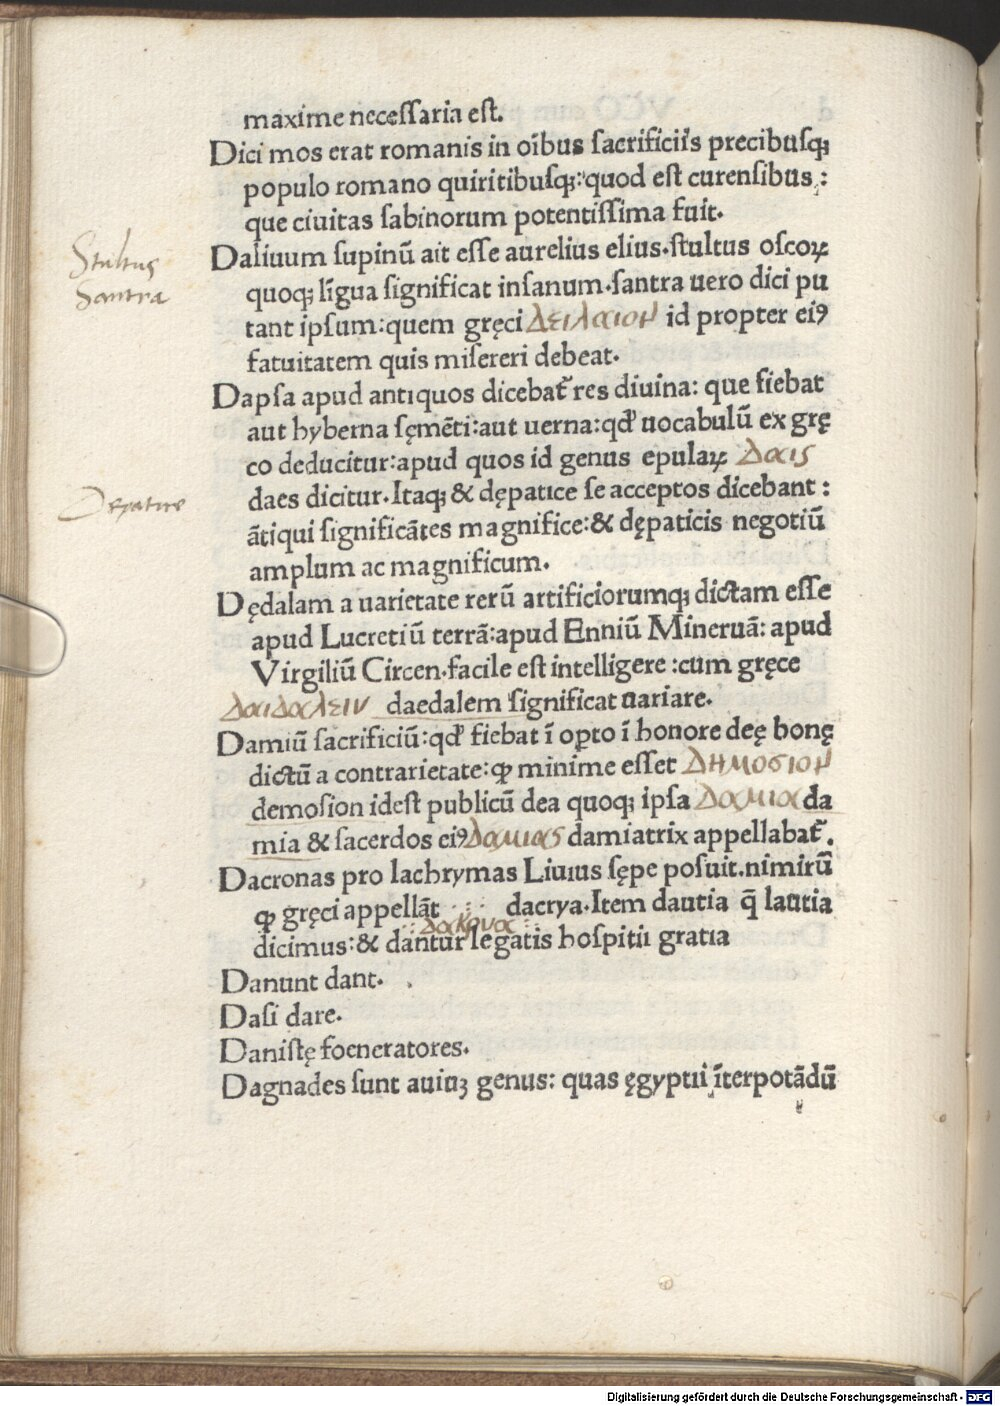 maxime necessaria est.
Dici mos erat romanis in oībus sacrificiis precibusqꝫ
populo romano quiritibusqꝫ: quod est curensibus:
que ciuitas sabinorum potentissima fuit.
Stultus
Daliuum supinū ait esse aurelius elius. stultus oscoꝝ
Santra
quoqꝫ līgua significat insanum. santra uero dici pu
tant ipsum: quem gręci δειλαιον id propter eiꝰ
fatuitatem quis misereri debeat.
Dapsa apud antiquos dicebat᷑ res diuina: que fiebat
aut hyberna sęmēti: aut uerna: qđ uocabulū ex grę
co deducitur: apud quos id genus epulaꝝ δαις
Depatice
daes dicitur. Itaqꝫ & dępatice se acceptos dicebant:
ātiqui significātes magnifice: & dępaticis negotiū
amplum ac magnificum.
Dędalam a uarietate rerū artificiorumqꝫ dictam esse
apud Lucretiū terrā: apud Enniū Mineruā: apud
Virgiliū Circen. facile est intelligere: cum gręce
δαιδαλειν daedalem significat uariare.
Damiū sacrificiū: qđ fiebat ī oꝑto ī honore deę bonę
dictū a contrarietate: ꝙ minime esset ΔΗμοσιον
demosion idest publicū dea quoqꝫ ipsa δαμια da
mia & sacerdos eiꝰ δαμιας damiatrix appellabat᷑.
Dacronas pro lachrymas Liuius sępe posuit. nimirū
ꝙ gręci appellāt dacrya. Item dautia q̄ lautia
δακρυα
dicimus: & dantur legatis hospitii gratia
Danunt dant.
Dasi dare.
Danistę foeneratores.
Dagnades sunt auiuꝫ genus: quas ęgyptii īterpotādū
Digitalisierung gefördert durch die Deutsche Forschungsgemeinschaft - DFG